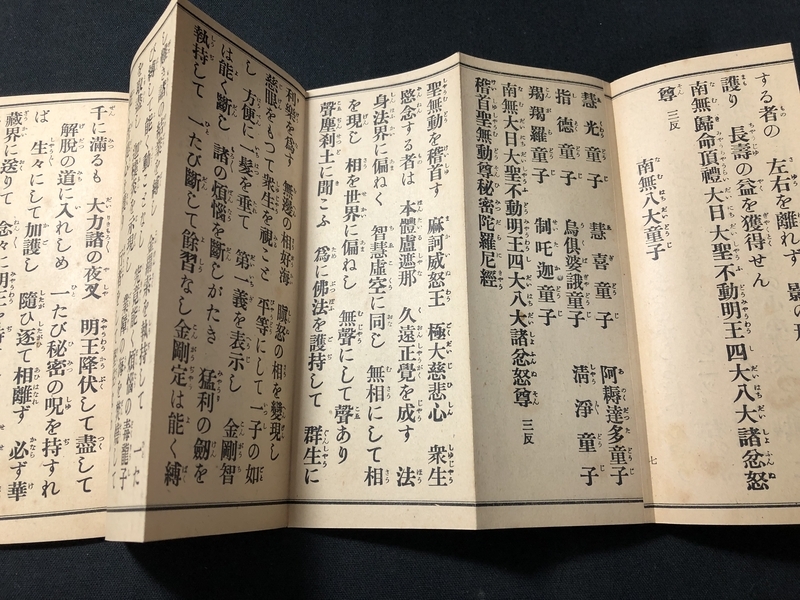 する者の 左右を離れず 影の
護り 長壽の益を獲得せん
南無歸命頂禮大日大聖不動明王四大八大諸忿怒
尊 三反
南無八大童子
七
慧光童子 慧喜童子 阿耨達多童子
指德童子 烏俱婆誐童子 淸淨童子
羯羅童子 制吒迦童子
南無大日大聖不動明王四大八大諸忿怒尊 三反
稽首聖無動尊秘密陀羅尼經
聖無動を稽首す 麻訶威怒王 極大慈悲心 衆生
愍念する者は 本體盧遮那 久遠正覺を成す 法
身法界に偏ねく 智慧虛空に同し 無相にして相
を現し 相を世界に偏ねし 無聲にして聲あり
聲塵刹土に聞こふ 爲に佛法を護持して 群生に
利樂を爲す 無邊の相好海 瞋怒の相を變現し
慈眼をもつて衆生を視こと 平等にして一子の如
し 方便に一髪を垂て 第一義を表示し 金剛智
は能く斷し 諸の煩惱を斷しがたき 猛利の劔を
執持して 一たび斷して餘習なし金剛定は能く縛
千に滿るも 大力諸の夜叉 明王降伏して盡して
解脫の道に入れしめ 一たび秘密の呪を持すれ
ば 生々にして加護し 隨ひ逐て相離ず 必ず華
藏界に送りて 念々に明王